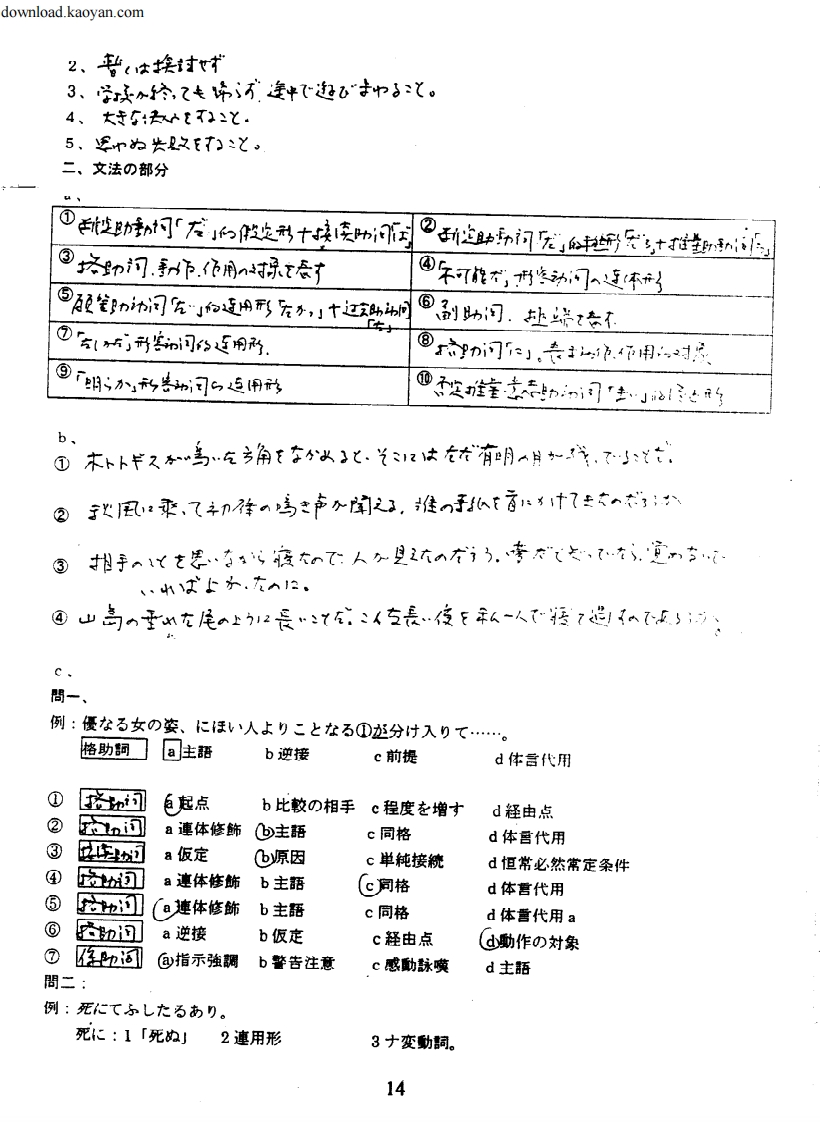 download.kaoyan.com
2、暫くは検討せず
3、学校が終っても帰らず、途中で遊びまわること。
4、大きな
5、思わぬ失敗をすること。
二、文法の部分
a、
① 断定助動詞「だ」的假定形+接続助詞「ば」
② 断定助動詞「だ」的
③ 格助詞、動作、作用の対象を表す
④ 「不可能だ」形容動詞の連体形
⑤ 願望助動詞「たい」的連用形「たかっ」+过去助动词「た」
⑥ 副助詞、
⑦ 形容動詞的连用形.
⑧ 格助詞「に」。表示动作、作用的对象
⑨ 「明らか」形容動詞の连用形
⑩ 否定推量意志助动词「まい」的
b、
① ホトトギスが鳴いた方角をながめると、そこにはただ有明の月が残っていることだ。
② 秋風に乗って初雁の鳴き声が聞える、誰の手紙を首にかけてきたのだろうか
③ 相手のことを思いながら寝たので、人が見えたのだろう。夢だと知っていたら、覚めないで
いればよかったのに。
④ 山鳥の垂れた尾のように長いことだ。こんな長い夜を私一人で寝て過すのであろうか。
c、
問一、
例：優なる女の姿、にほい人よりことなる①が分け入りて……。
格助詞 a主語 b逆接 c前提 d体言代用
① 格助词 a起点 b比較の相手 c程度を増す d経由点
② 格助词 a連体修飾 b主語 c同格 d体言代用
③ 接続助詞 a仮定 b原因 c単純接続 d恒常必然常定条件
④ 格助词 a連体修飾 b主語 c同格 d体言代用
⑤ 格助词 a連体修飾 b主語 c同格 d体言代用a
⑥ 格助词 a逆接 b仮定 c経由点 d動作の対象
⑦ 係助词 a指示強調 b警告注意 c感動詠嘆 d主語
問二：
例：死にてふしたるあり。
死に：1「死ぬ」 2連用形 3ナ変動詞。
14